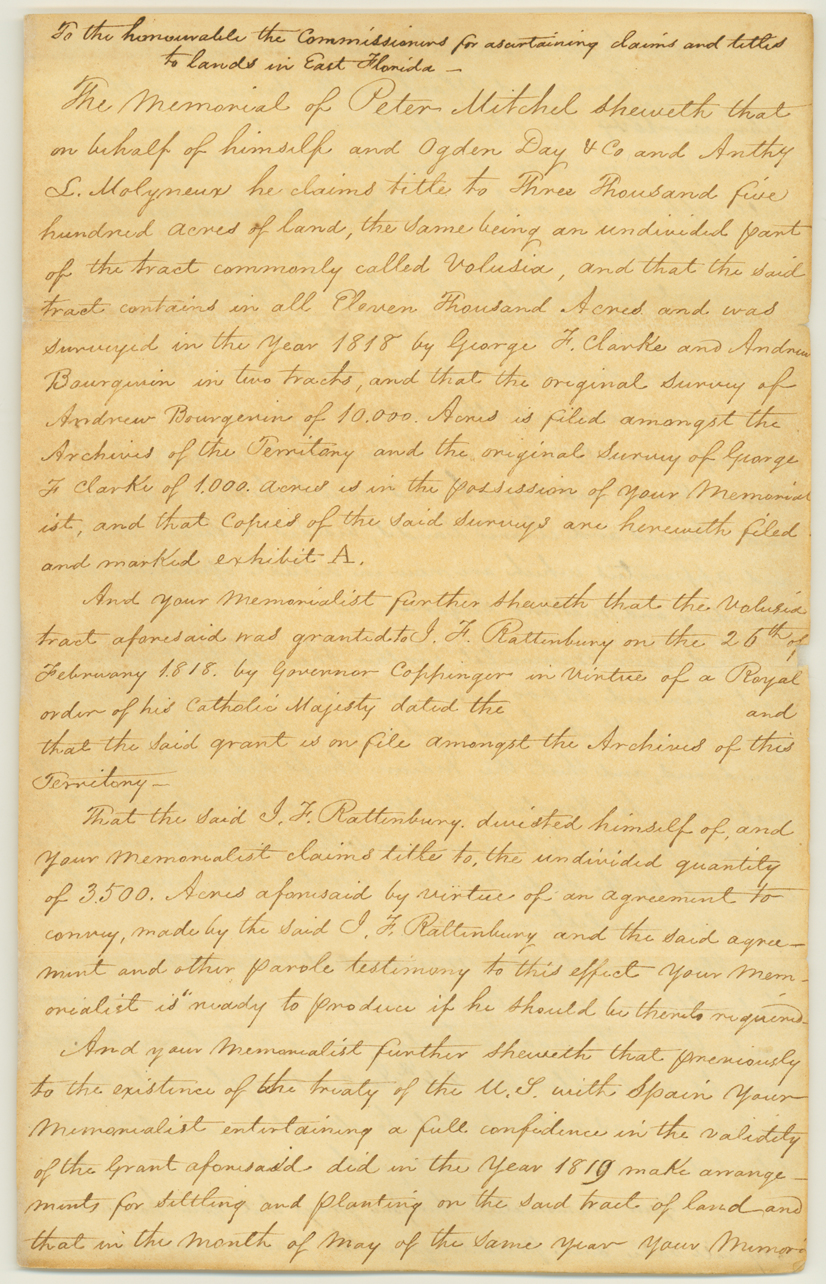 To the honourable the Commissioners for ascertaining claims and titles
to lands in East Florida —
The Memorial of Peter Mitchel sheweth that
on behalf of himself and Ogden Day & Co and Anthy
L. Molyneux he claims title to Three Thousand five
hundred acres of land, the same being an undivided part
of the tract commonly called Volusia, and that the said
tract contains in all Eleven Thousand Acres and was
surveyed in the Year 1818 by George F. Clarke and Andrew
Bourquin in two tracts, and that the original survey of
Andrew Bourgevin of 10.000. Acres is filed amongst the
Archives of the Territory and the original Survey of George
F Clarke of 1.000. acres is in the possession of your Memorial
ist, and that Copies of the said surveys are herewith filed
and marked exhibit A.
And your Memorialist further sheweth that the Volusia
tract aforesaid was granted to J. F. Rattenbury on the 26th of
February 1818. by Governor Coppinger in virtue of a Royal
order of his Catholic Majesty dated the and
that the said grant is on file amongst the Archives of this
Territory —
That the said J. F. Rattenbury. divisted himself of, and
your Memorialist claims title to, the undivided quantity
of 3.500. Acres aforesaid by virtue of an agreement to
convey, made by the said J. F. Rattenbury and the said agree—
ment and other parole testimony to this effect Your Mem-
orialist is ready to produce if he should be thereto required.
And your Memorialist further sheweth that previously
to the existence of the treaty of the U. S. with Spain Your
Memorialist entertaining a full confidence in the validity
of the Grant aforesaid did in the Year 1819 make arrange-
ments for settling and planting on the said tract of land and
that in the month of May of the same year your Memori